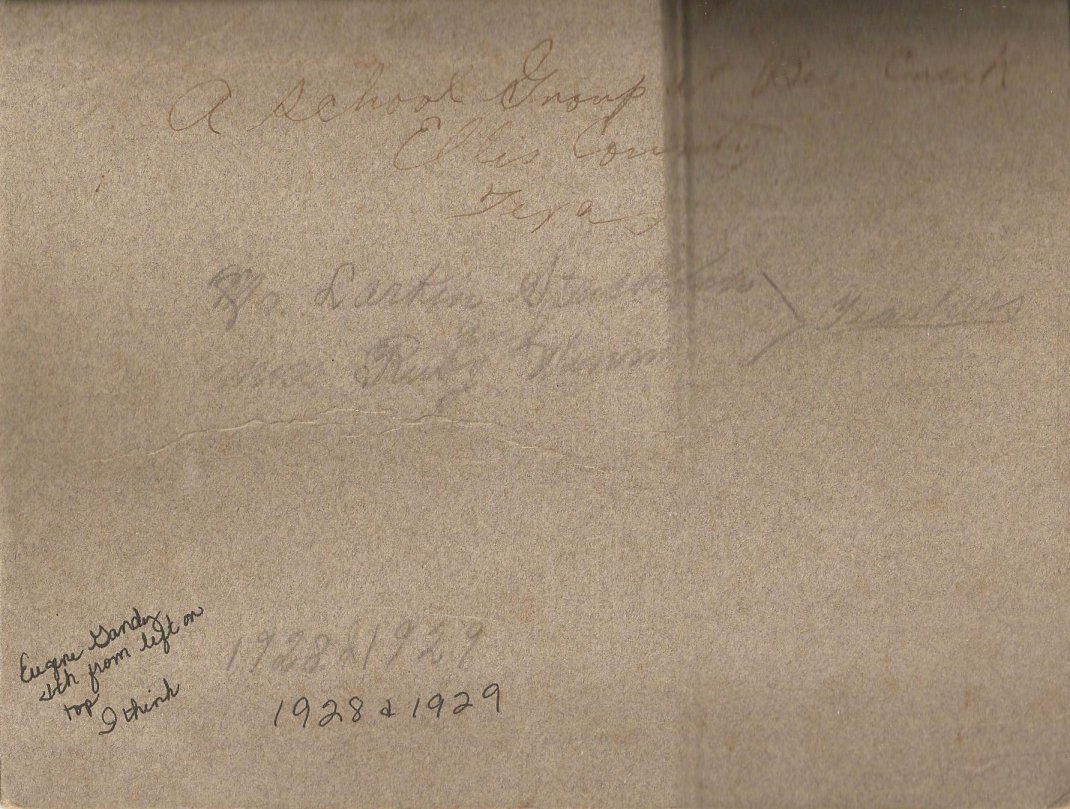 A School Group Creek
Ellis County
Texas
Larkin
and
Miss Ruby
Teachers
1928 & 1929
Eugene Gandy
4th from left on
top
I think
1928 & 1929